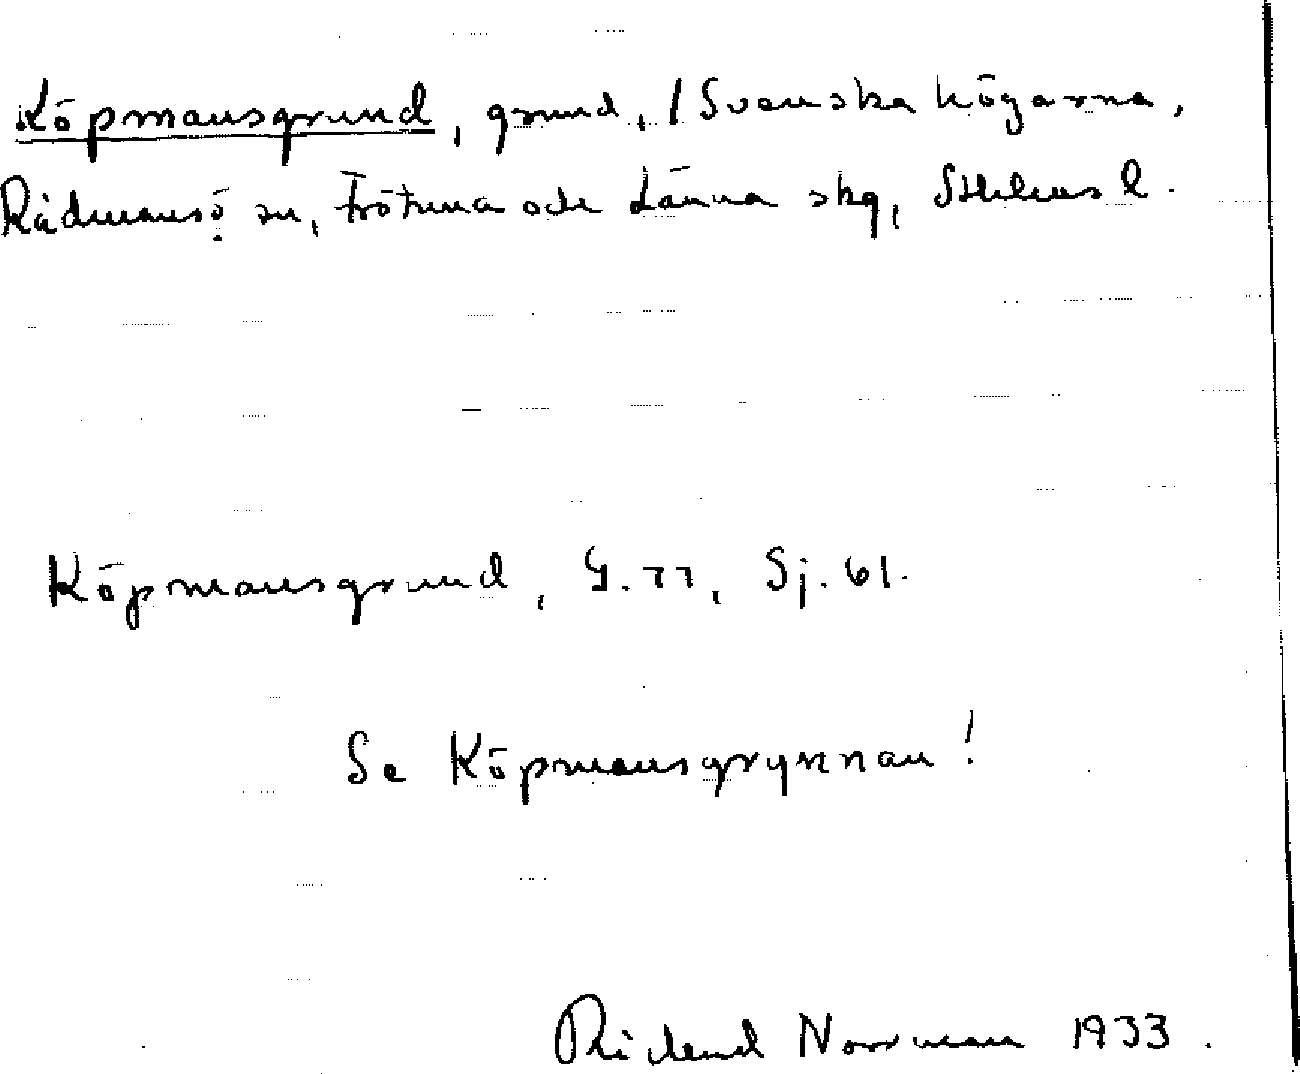 Köpmansgrund, grund, / Svenska högarna,
Rådmansö sn, Frötuna och Länna skg, Sthlms l.
Köpmansgrund, G. 77, Sj. 61.
Se Köpmansgrynnan!
Rickard Norrman 1933.